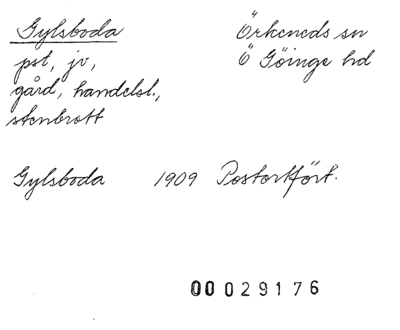 Gylsboda Örkeneds sn
pst, jv, Ö Göinge hd
gård, handelsl.,
stenbrott
Gylsboda 1909 Postortfört.
00 029176